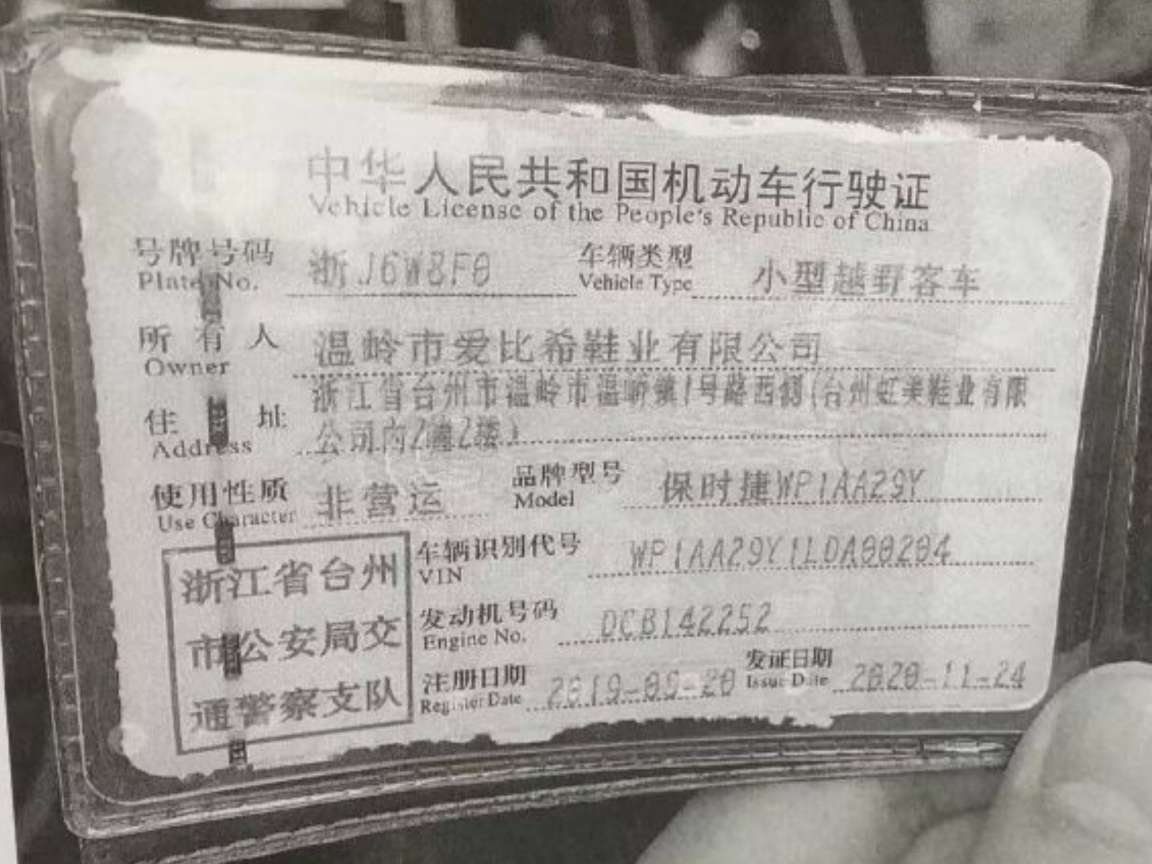 中华人民共和国机动车行驶证
Vehicle License of the People's Republic of China
号牌号码 浙J6W8F0 车辆类型 小型越野客车
Plate No. Vehicle Type
所有人 温岭市爱比希鞋业有限公司
Owner
住址 浙江省台州市温岭市温峤镇1号路西侧(台州虹美鞋业有限
Address 公司内2幢2楼)
使用性质 非营运 品牌型号 保时捷WP1AA29Y
Use Character Model
浙江省台州 车辆识别代号 WP1AA29Y1LDA00204
VIN
市公安局交 发动机号码 DCB142252
Engine No.
通警察支队 注册日期 2019-09-20 发证日期 2020-11-24
Register Date Issue Date